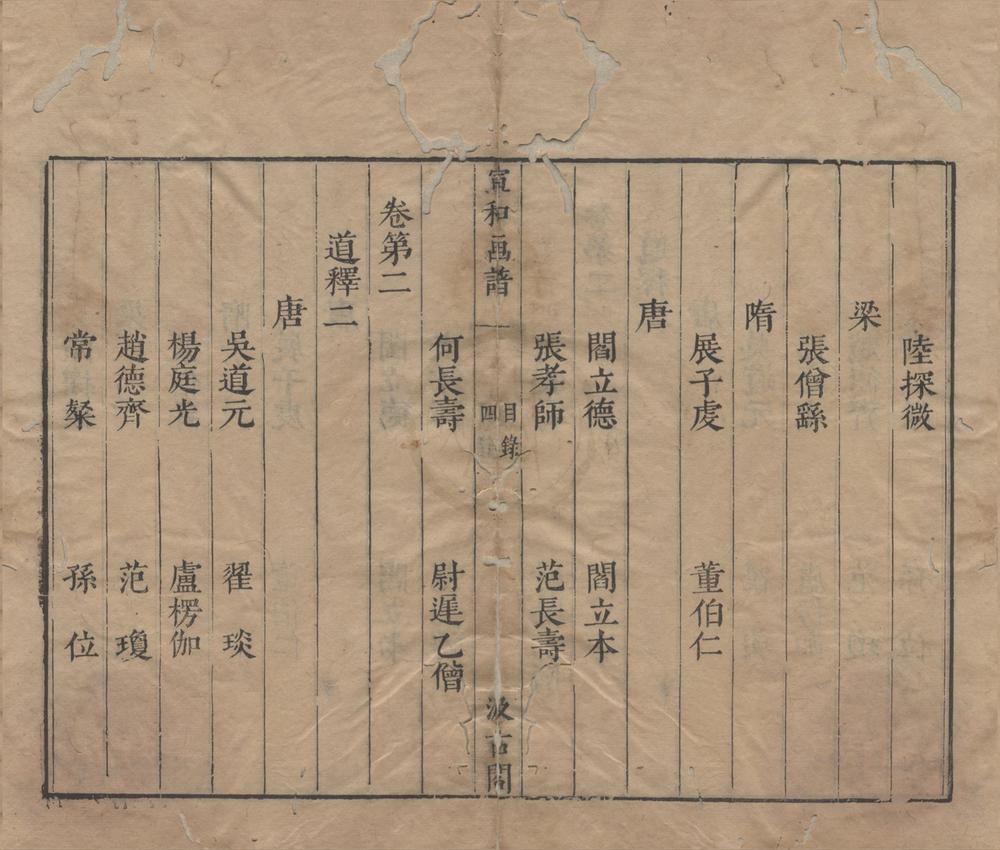 陸探微
梁
張僧繇
隋
展子虔　董伯仁
唐
閻立德　閻立本
張孝師　范長壽
宣和画譜　目錄　四　汲古閣
何長壽　尉遲乙僧
卷第二
道釋二
唐
吳道元　翟琰
楊庭光　盧楞伽
趙德齊　范瓊
常粲　孫位